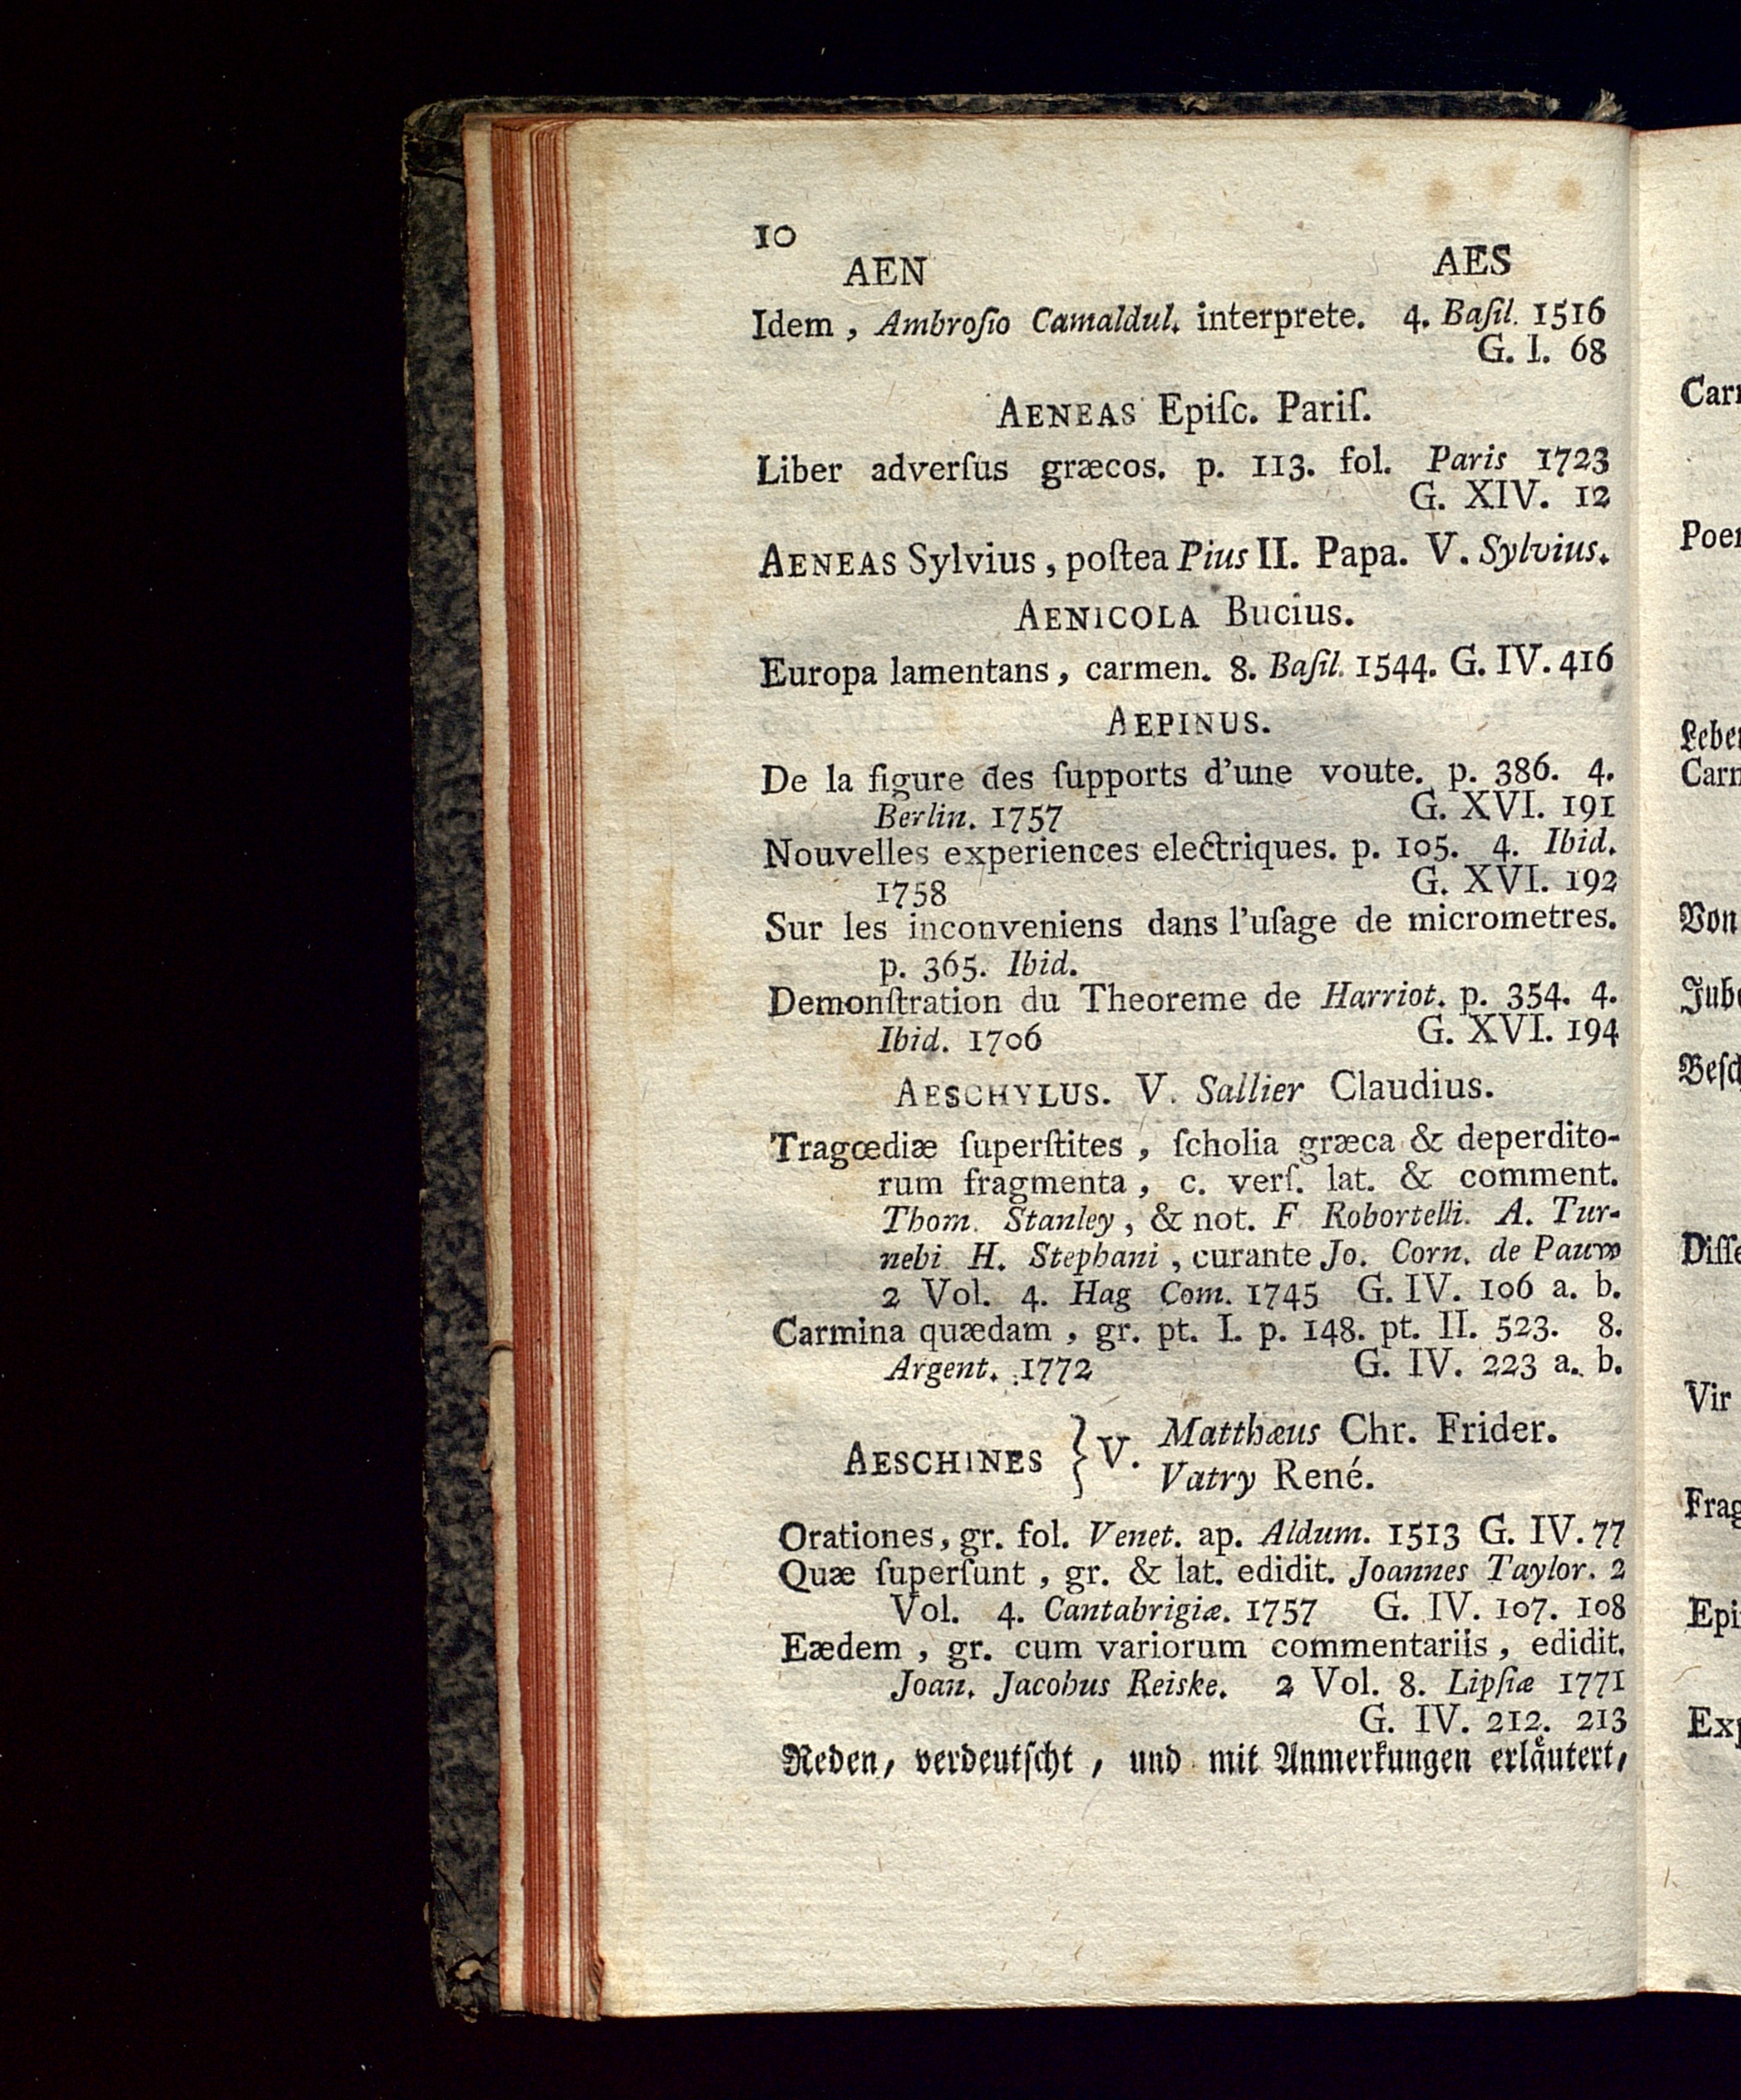 10
AEN AES
Idem, Ambroſio Camaldul. interprete. 4. Baſil. 1516
G. I. 68
AENEAS Epiſc. Pariſ.
Liber adverſus græcos. p. 113. fol. Paris 1723
G. XIV. 12
AENEAS Sylvius, poſtea Pius II. Papa. V. Sylvius.
AENICOLA Bucius.
Europa lamentans, carmen. 8. Baſil. 1544. G. IV. 416
AEPINUS.
De la figure des ſupports d'une voute. p. 386. 4.
Berlin. 1757 G. XVI. 191
Nouvelles experiences electriques. p. 105. 4. Ibid.
1758 G. XVI. 192
Sur les inconveniens dans l'uſage de micrometres.
p. 365. Ibid.
Demonſtration du Theoreme de Harriot. p. 354. 4.
Ibid. 1706 G. XVI. 194
AESCHYLUS. V. Sallier Claudius.
Tragœdiæ ſuperſtites, ſcholia græca & deperdito-
rum fragmenta, c. verſ. lat. & comment.
Thom. Stanley, & not. F Robortelli. A. Tur-
nebi H. Stephani, curante Jo. Corn. de Pauw
2 Vol. 4. Hag Com. 1745 G. IV. 106 a. b.
Carmina quædam, gr. pt. I. p. 148. pt. II. 523. 8.
Argent. 1772 G. IV. 223 a. b.
AESCHINES } V. Matthæus Chr. Frider.
Vatry René.
Orationes, gr. fol. Venet. ap. Aldum. 1513 G. IV. 77
Quæ ſuperſunt, gr. & lat. edidit. Joannes Taylor. 2
Vol. 4. Cantabrigiæ. 1757 G. IV. 107. 108
Eædem, gr. cum variorum commentariis, edidit.
Joan. Jacobus Reiske. 2 Vol. 8. Lipſiæ 1771
G. IV. 212. 213
Reden, verdeutſcht, und mit Anmerkungen erläutert,
Poe
Von
Vir
Frag